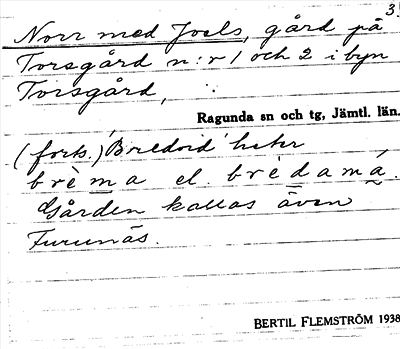 3.
Norr med Joels, gård på
Torsgård n:r 1 och 2 i byn
Torsgård,
Ragunda sn och tg, Jämtl. län.
(forts.) 'Bredvid' heter
brèma el. brèdamá.
Gården kallas även
Furunäs.
BERTIL FLEMSTRÖM 1938